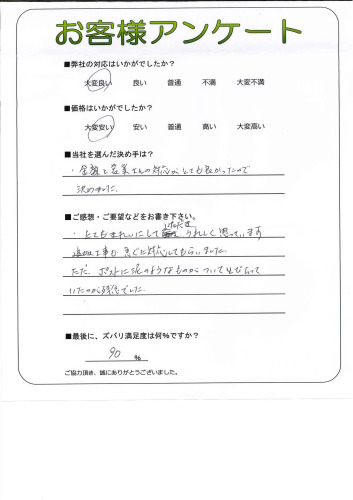 お客様アンケート
■弊社の対応はいかがでしたか？
大変良い 良い 普通 不満 大変不満
■価格はいかがでしたか？
大変安い 安い 普通 高い 大変高い
■当社を選んだ決め手は？
・金額と営業さんの対応がとても良かったので
決めました。
■ご感想・ご要望などをお書き下さい。
・とてもきれいにしていただきうれしく思っています
追加工事も急ぐに対応してもらいました
ただ、ポストに泥のようなものがついて
いたのが残念でした。
■最後に、ズバリ満足度は何％ですか？
90 ％
ご協力頂き、誠にありがとうございました。